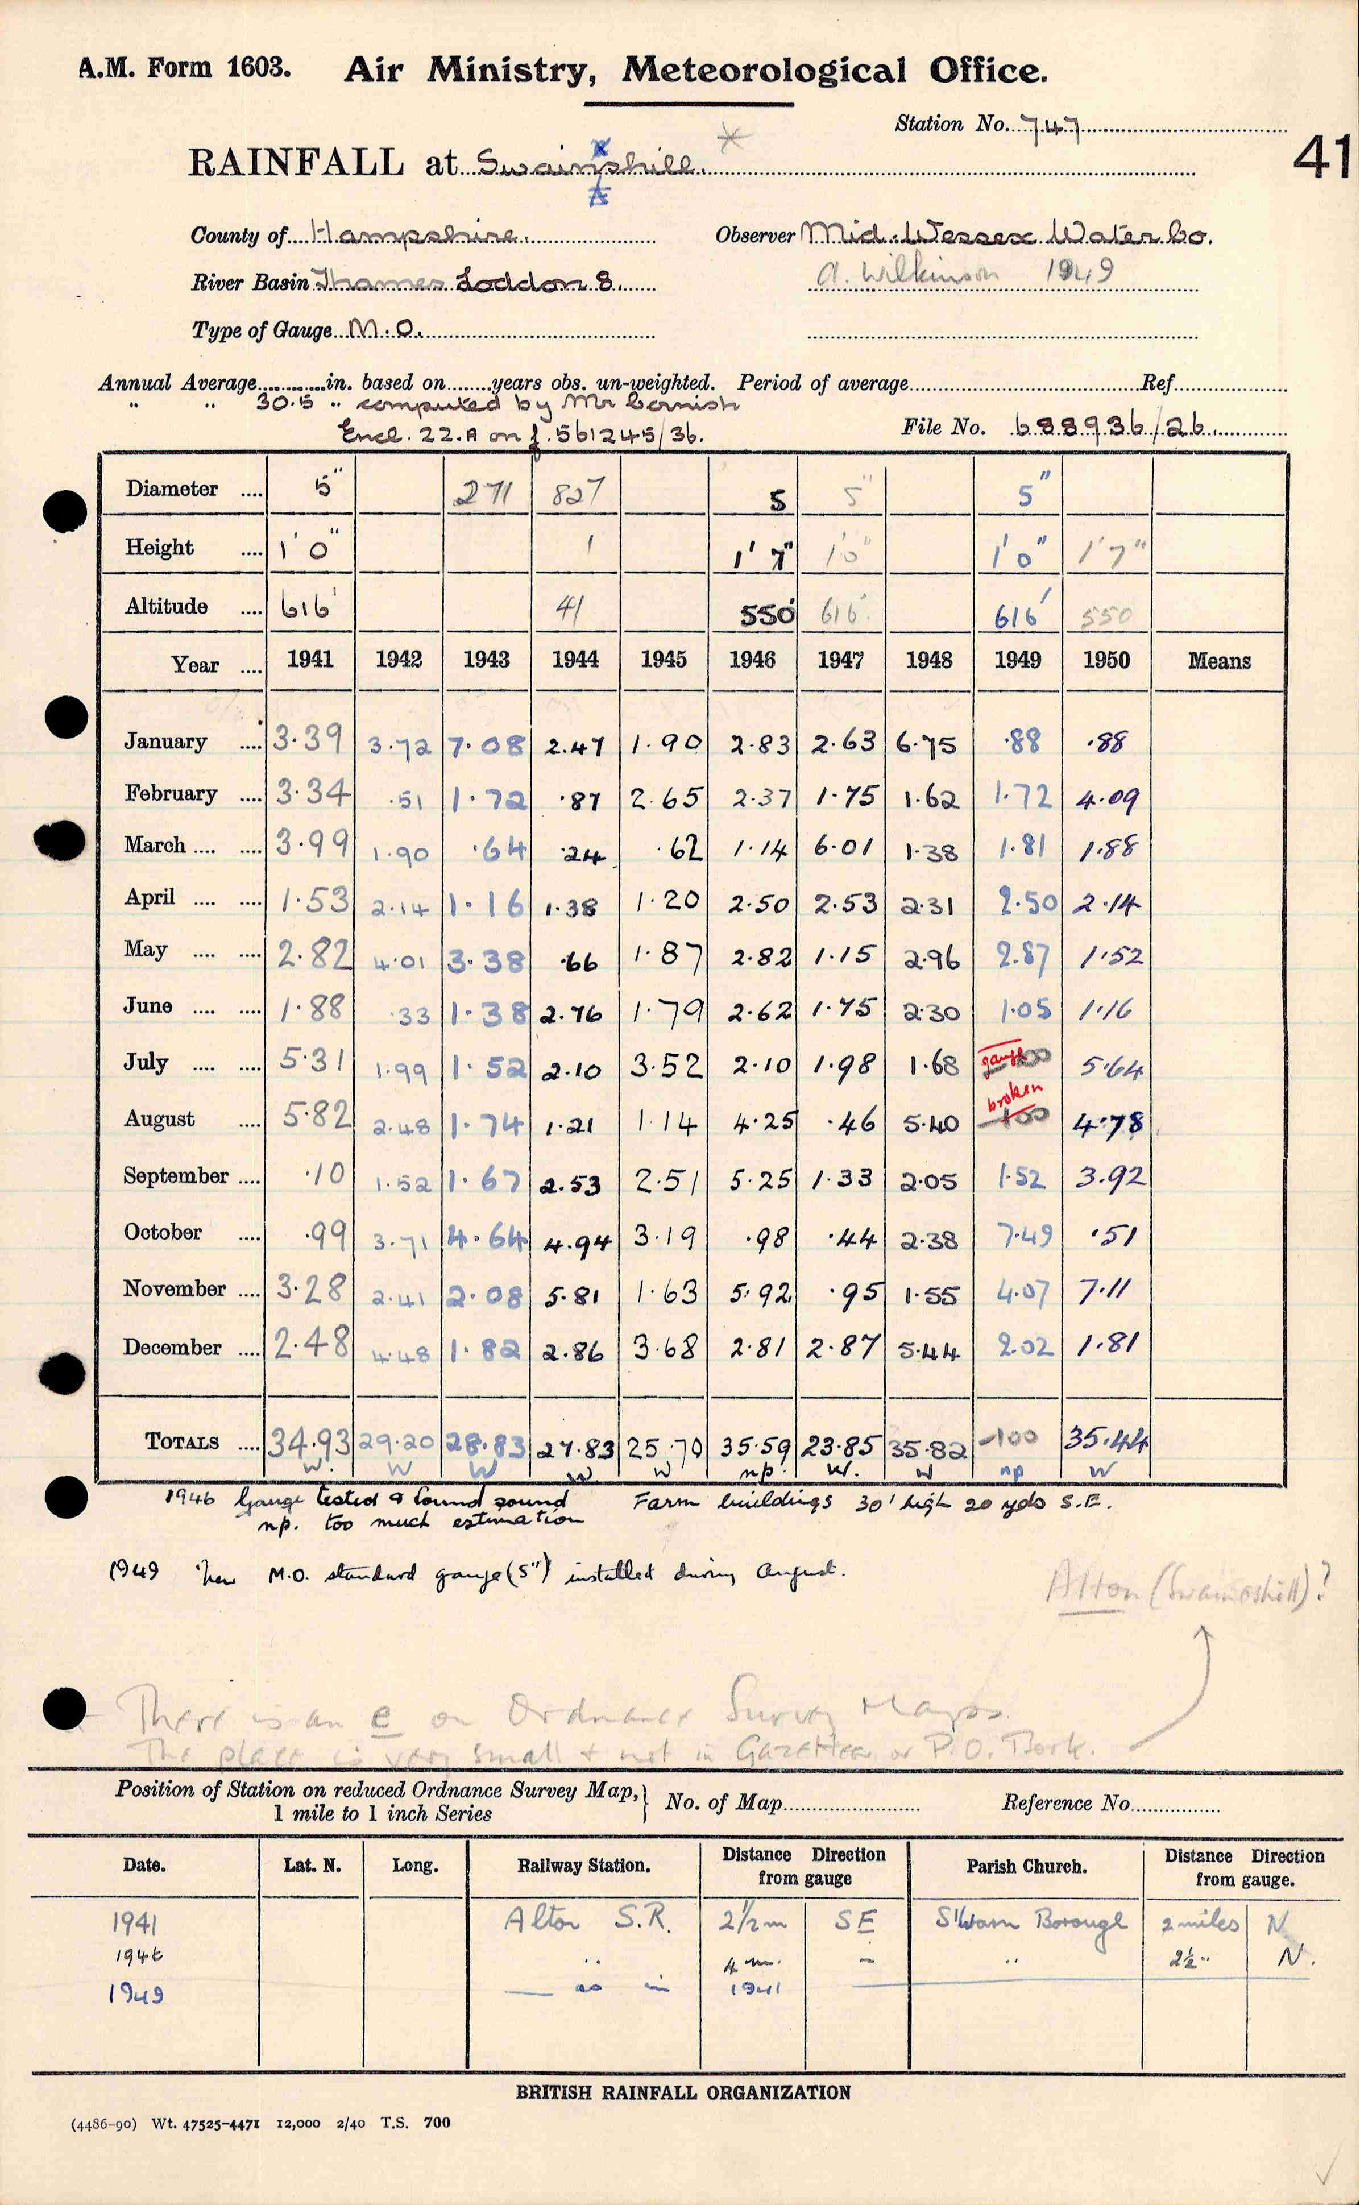 A.M. Form 1603. Air Ministry, Meteorological Office.
Station No. 747
41
RAINFALL at Swainshill.
County of Hampshire. Observer Mid. Wessex Water Co.
River Basin Thames Loddon 8. A. Wilkinson 1949
Type of Gauge M.O.
Annual Average in. based on years obs. un-weighted. Period of average Ref
" " 30.5 " computed by Mr Cornish
Encl. 22.A on f. 561245/36. File No. 688936/26
Diameter 5" 271 827 5 5" 5"
Height 1'0" 1 1'7" 1'0" 1'0" 1'7"
Altitude 616' 41 550' 616' 616' 550
Year 1941 1942 1943 1944 1945 1946 1947 1948 1949 1950 Means
January 3.39 3.72 7.08 2.47 1.90 2.83 2.63 6.75 .88 .88
February 3.34 .51 1.72 .87 2.65 2.37 1.75 1.62 1.72 4.09
March 3.99 1.90 .64 .24 .62 1.14 6.01 1.38 1.81 1.88
April 1.53 2.14 1.16 1.38 1.20 2.50 2.53 2.31 2.50 2.14
May 2.82 4.01 3.38 .66 1.87 2.82 1.15 2.96 2.87 1.52
June 1.88 .33 1.38 2.76 1.79 2.62 1.75 2.30 1.05 1.16
July 5.31 1.99 1.52 2.10 3.52 2.10 1.98 1.68 gauge 5.64
August 5.82 2.48 1.74 1.21 1.14 4.25 .46 5.40 broken -100 4.78
September .10 1.52 1.67 2.53 2.51 5.25 1.33 2.05 1.52 3.92
October .99 3.71 4.64 4.94 3.19 .98 .44 2.38 7.49 .51
November 3.28 2.41 2.08 5.81 1.63 5.92 .95 1.55 4.07 7.11
December 2.48 4.48 1.82 2.86 3.68 2.81 2.87 5.44 2.02 1.81
TOTALS 34.93 29.20 28.83 27.83 25.70 35.59 23.85 35.82 -100 35.44
W. W W W W np. W. W np W
1946 Gauge tested & found sound Farm buildings 30' high 20 yds S.E.
np. too much estimation
1949 New M.O. standard gauge (5") installed during August.
Alton (Swainshill)?
There is an e on Ordnance Survey Maps.
The place is very small & not in Gazetteer or P.O. Book.
Position of Station on reduced Ordnance Survey Map, 1 mile to 1 inch Series } No. of Map Reference No.
Date. Lat. N. Long. Railway Station. Distance Direction from gauge Parish Church. Distance Direction from gauge.
1941 Alton S.R. 2½m SE S'Warn Borough 2 miles N
1946 " 4 m. - " 2½ " N.
1949 — as in 1941
BRITISH RAINFALL ORGANIZATION
(4486-90) Wt. 47525-4471 12,000 2/40 T.S. 700